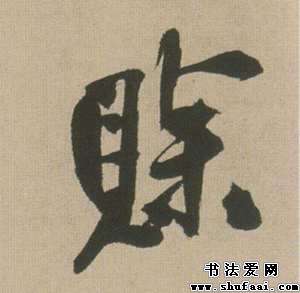 賒
书法爱网
www.shufaai.com